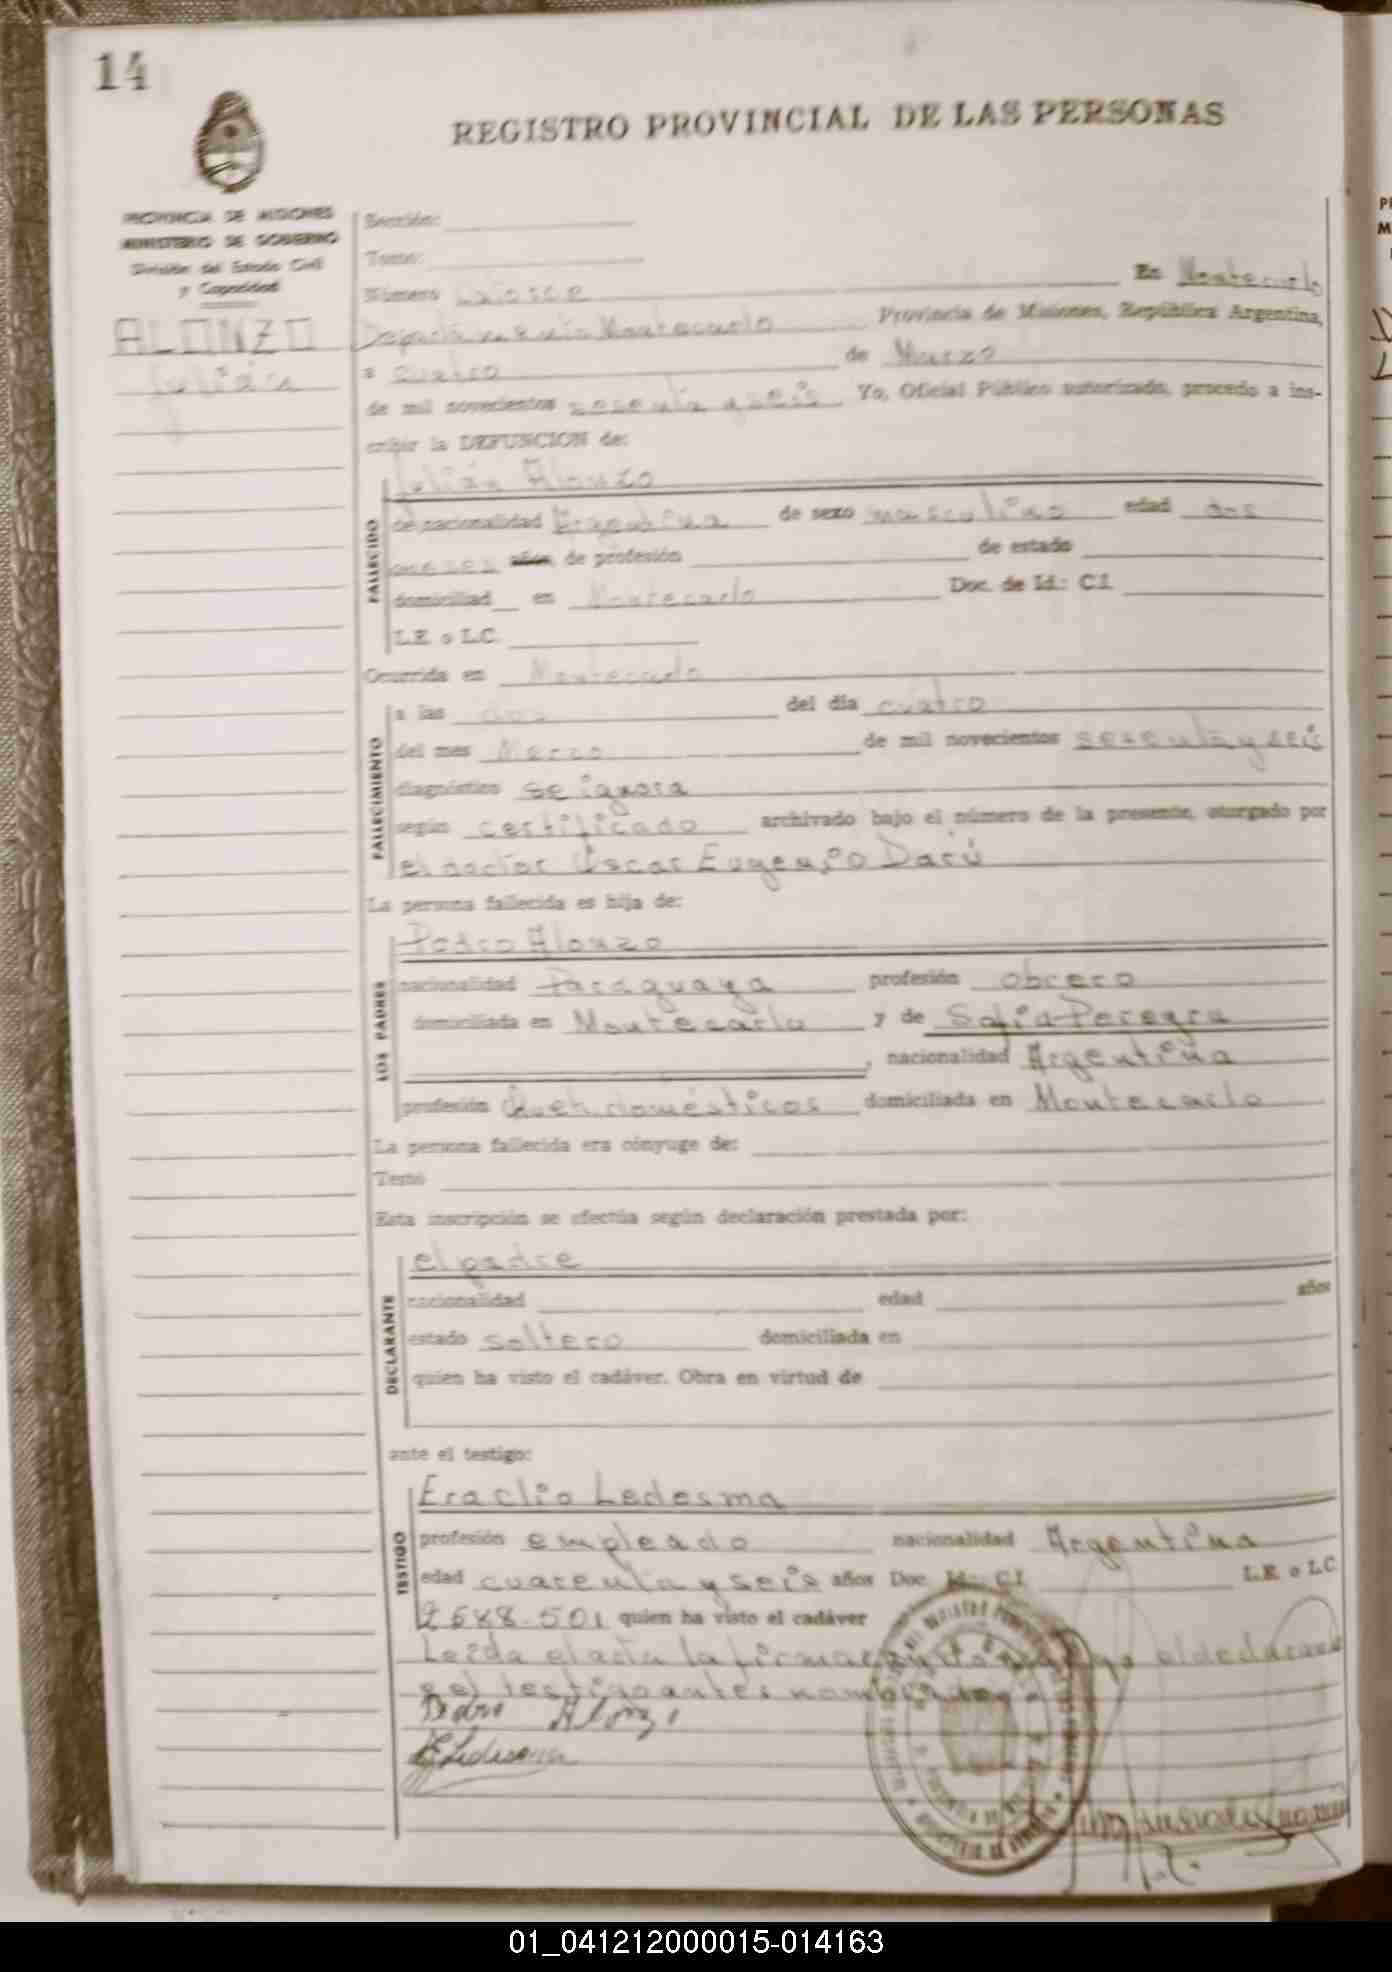 14
REGISTRO PROVINCIAL DE LAS PERSONAS
PROVINCIA DE MISIONES
MINISTERIO DE GOBIERNO
División del Estado Civil
y Capacidad
ALONZO
Julián
Sección:
Tomo:
Número catorce En Montecarlo
Departamento Montecarlo Provincia de Misiones, República Argentina,
a cuatro de Marzo
de mil novecientos sesenta y seis Yo, Oficial Público autorizado, procedo a ins-
cribir la DEFUNCION de:
FALLECIDO
Julián Alonzo
de nacionalidad Argentina de sexo masculino edad dos
meses años de profesión de estado
domiciliad en Montecarlo Doc. de Id.: C.I.
L.E. o L.C.
Ocurrida en Montecarlo
FALLECIMIENTO
a las dos del día cuatro
del mes Marzo de mil novecientos sesenta y seis
diagnóstico se ignora
según certificado archivado bajo el número de la presente, otorgado por
el doctor Oscar Eugenio Darú
La persona fallecida es hija de:
LOS PADRES
Pedro Alonzo
nacionalidad Paraguaya profesión obrero
domiciliada en Montecarlo y de Sofia Pereyra
, nacionalidad Argentina
profesión Queh. domésticos domiciliada en Montecarlo
La persona fallecida era cónyuge de:
Testó
Esta inscripción se efectúa según declaración prestada por:
DECLARANTE
el padre
nacionalidad edad años
estado soltero domiciliada en
quien ha visto el cadáver. Obra en virtud de
ante el testigo:
TESTIGO
Eraclio Ledesma
profesión empleado nacionalidad Argentina
edad cuarenta y seis años Doc. Id.: C.I. L.E. o L.C.
2.588.501 quien ha visto el cadáver
Leida el acta la firman el declarante
y el testigo antes nombrados
Pedro Alonzo
E Ledesma
01_041212000015-014163